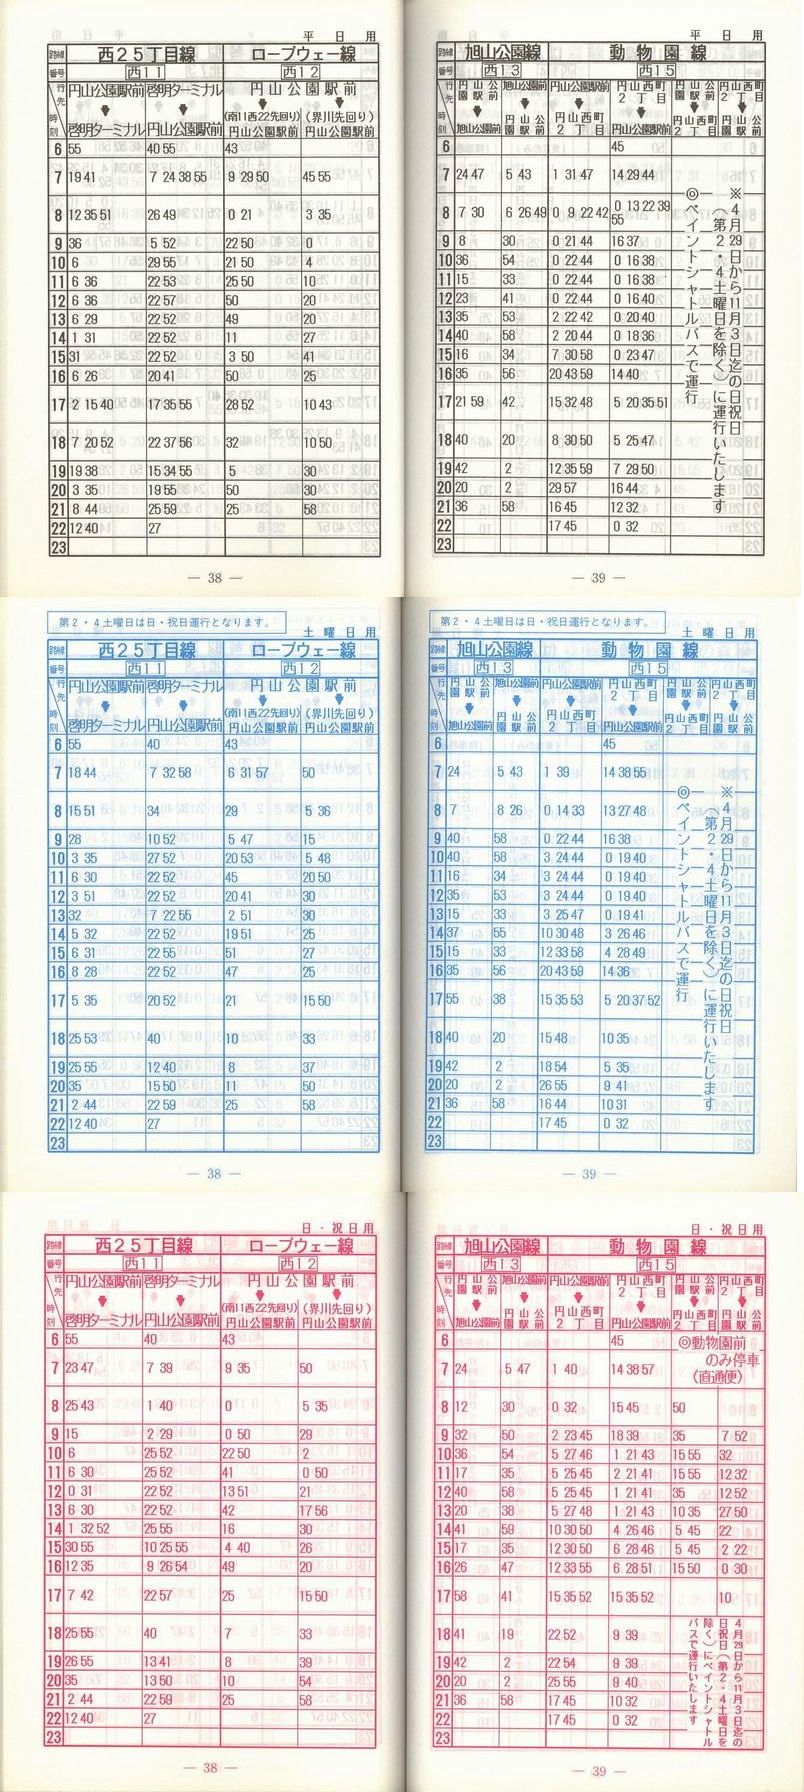 平日用
路線 西25丁目線 ロープウェー線
番号 西11 西12
行先 円山公園駅前 啓明ターミナル 円山公園駅前
(南11西22先回り) (界川先回り)
時刻 啓明ターミナル 円山公園駅前 円山公園駅前 円山公園駅前
6 55 40 55 43
7 19 41 7 24 38 55 9 29 50 45 55
8 12 35 51 26 49 0 21 3 35
9 36 5 52 22 50 0
10 6 29 55 21 50 4
11 6 36 22 53 25 50 10
12 6 36 22 57 50 20
13 6 29 22 52 49 20
14 1 31 22 52 11 27
15 31 22 52 3 50 41
16 6 26 20 41 50 25
17 2 15 40 17 35 55 28 52 10 43
18 7 20 52 22 37 56 32 10 50
19 19 38 15 34 55 5 30
20 3 35 19 55 50 30
21 8 44 25 59 25 58
22 12 40 27
23
— 38 —
平日用
路線 旭山公園線 動物園線
番号 西13 西15
行先 円山公園駅前 旭山公園前 円山公園駅前 円山西町2丁目 円山公園駅前 円山西町2丁目
時刻 旭山公園前 円山公園駅前 円山西町2丁目 円山公園駅前 円山西町2丁目 円山公園駅前
6 45
7 24 47 5 43 1 31 47 14 29 44
8 7 30 6 26 49 0 9 22 42 0 13 22 39 55
9 8 30 0 21 44 16 37
10 36 54 0 22 44 0 16 38
11 15 33 0 22 44 0 16 38
12 23 41 0 22 44 0 16 40
13 35 53 2 22 42 0 20 40
14 40 58 2 20 44 0 18 36
15 16 34 7 30 58 0 23 47
16 35 56 20 43 59 14 40
17 21 59 42 15 32 48 5 20 35 51
18 40 20 8 30 50 5 25 47
19 42 2 12 35 59 7 29 50
20 20 2 29 57 16 44
21 36 58 16 45 12 32
22 17 45 0 32
23
※4月29日から11月3日迄の日祝日
(第2・4土曜日を除く)に運行いたします
◎ペイントシャトルバスで運行
— 39 —
第2・4土曜日は日・祝日運行となります。
土曜日用
路線 西25丁目線 ロープウェー線
番号 西11 西12
行先 円山公園駅前 啓明ターミナル 円山公園駅前
(南11西22先回り) (界川先回り)
時刻 啓明ターミナル 円山公園駅前 円山公園駅前 円山公園駅前
6 55 40 43
7 18 44 7 32 58 6 31 57 50
8 15 51 34 29 5 36
9 28 10 52 5 47 15
10 3 35 27 52 20 53 5 48
11 6 30 22 52 45 20 50
12 3 51 22 52 20 41 30
13 32 7 22 55 2 51 30
14 5 32 22 52 19 51 25
15 6 31 22 55 51 27
16 8 28 22 52 47 25
17 5 35 20 52 21 15 50
18 25 53 40 10 33
19 25 55 12 40 8 37
20 35 15 50 11 50
21 2 44 22 59 25 58
22 12 40 27
23
— 38 —
第2・4土曜日は日・祝日運行となります。
土曜日用
路線 旭山公園線 動物園線
番号 西13 西15
行先 円山公園駅前 旭山公園前 円山公園駅前 円山西町2丁目 円山公園駅前 円山西町2丁目
時刻 旭山公園前 円山公園駅前 円山西町2丁目 円山公園駅前 円山西町2丁目 円山公園駅前
6 45
7 24 5 43 1 39 14 38 55
8 7 8 26 0 14 33 13 27 48
9 40 58 0 22 44 16 38
10 40 58 3 24 44 0 19 40
11 16 34 3 24 44 0 19 40
12 35 53 3 24 44 0 19 40
13 15 33 3 25 47 0 19 41
14 37 55 10 30 48 3 26 46
15 15 33 12 33 58 4 28 49
16 35 56 20 43 59 14 36
17 55 38 15 35 53 5 20 37 52
18 40 20 15 48 10 35
19 42 2 18 54 5 35
20 20 2 26 55 9 41
21 36 58 16 44 10 31
22 17 45 0 32
23
※4月29日から11月3日迄の日祝日
(第2・4土曜日を除く)に運行いたします
◎ペイントシャトルバスで運行
— 39 —
日・祝日用
路線 西25丁目線 ロープウェー線
番号 西11 西12
行先 円山公園駅前 啓明ターミナル 円山公園駅前
(南11西22先回り) (界川先回り)
時刻 啓明ターミナル 円山公園駅前 円山公園駅前 円山公園駅前
6 55 40 43
7 23 47 7 39 9 35 50
8 25 43 1 40 0 5 35
9 15 2 29 0 50 29
10 6 25 52 22 50 2
11 6 30 25 52 41 0 50
12 0 31 22 52 13 51 21
13 6 30 22 52 42 17 56
14 1 32 52 25 55 16 30
15 30 55 10 25 55 4 40 26
16 12 35 9 26 54 49 20
17 7 42 22 57 25 15 50
18 25 55 40 7 33
19 26 55 13 41 8 39
20 35 13 50 10 54
21 2 44 22 59 25 58
22 12 40 27
23
— 38 —
日・祝日用
路線 旭山公園線 動物園線
番号 西13 西15
行先 円山公園駅前 旭山公園前 円山公園駅前 円山西町2丁目 円山公園駅前 円山西町2丁目
時刻 旭山公園前 円山公園駅前 円山西町2丁目 円山公園駅前 円山西町2丁目 円山公園駅前
6 45
◎動物園前
のみ停車
(直通便)
7 24 5 47 1 40 14 38 57
8 12 30 0 32 15 45 50
9 32 50 2 23 45 18 39 35 7 52
10 36 54 5 27 46 1 21 43 15 55 32
11 17 35 5 25 45 2 21 41 15 55 12 32
12 40 58 5 25 45 1 21 41 35 12 52
13 20 38 5 27 48 1 21 43 10 35 27 50
14 41 59 10 30 50 4 26 46 5 45 22
15 17 35 12 30 50 6 28 46 5 45 2 22
16 26 47 12 33 55 6 28 51 15 50 0 30
17 58 41 15 35 52 15 35 52 10
18 41 19 22 52 9 39
19 42 2 22 54 9 39
20 20 2 25 55 9 40
21 36 58 17 45 10 32
22 17 45 0 32
23
4月29日から11月3日迄の
日祝日(第2・4土曜日を
除く)にペイントシャトル
バスで運行いたします
— 39 —